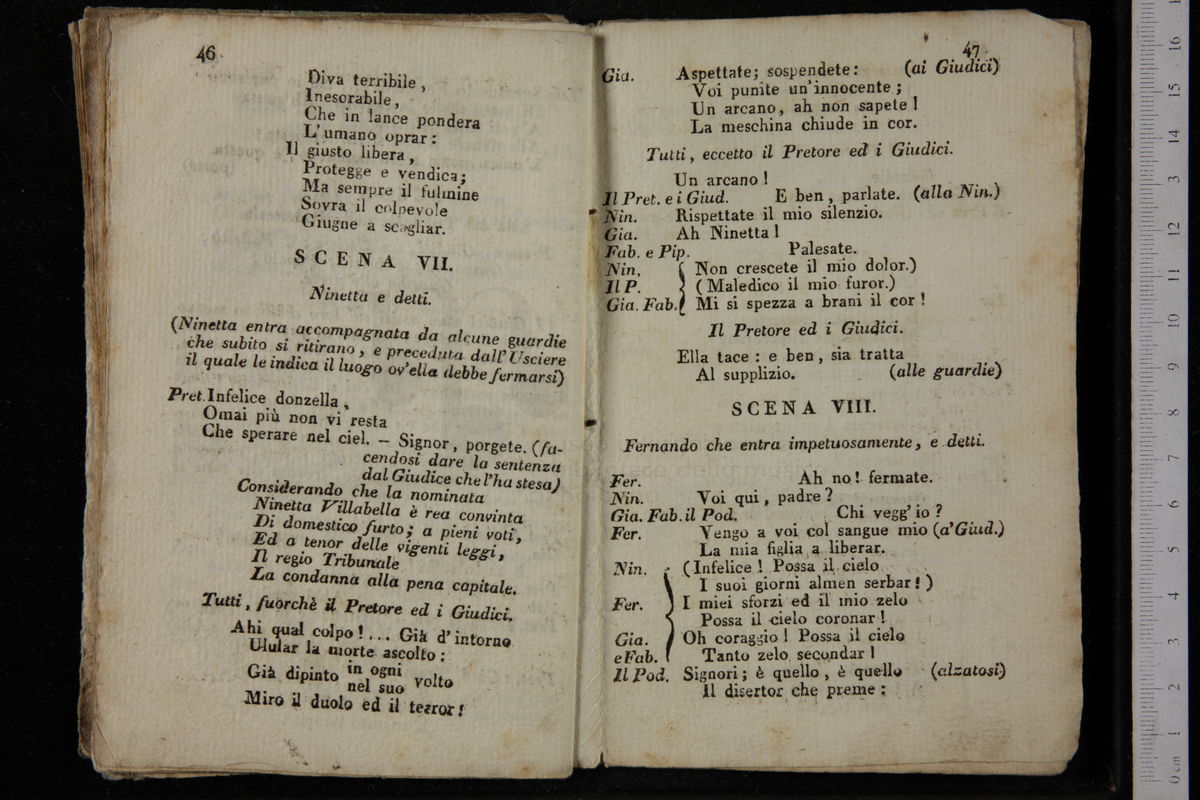 46
Diva terribile,
Inesorabile,
Che in lance pondera
L'umano oprar:
Il giusto libera,
Protegge e vendica;
Ma sempre il fulmine
Sovra il colpevole
Giugne a scagliar.
SCENA VII.
Ninetta e detti.
(Ninetta entra accompagnata da alcune guardie
che subito si ritirano, e preceduta dall'Usciere
il quale le indica il luogo ov'ella debbe fermarsi)
Pret. Infelice donzella,
Omai più non vi resta
Che sperare nel ciel. – Signor, porgete. (fa-
cendosi dare la sentenza
dal Giudice che l'ha stesa)
Considerando che la nominata
Ninetta Villabella è rea convinta
Di domestico furto; a pieni voti,
Ed a tenor delle vigenti leggi,
Il regio Tribunale
La condanna alla pena capitale.
Tutti, fuorchè il Pretore ed i Giudici.
Ahi qual colpo!... Già d'intorno
Ulular la morte ascolto:
Già dipinto in ogni volto
nel suo
Miro il duolo ed il terror!
47
Gia. Aspettate; sospendete: (ai Giudici)
Voi punite un'innocente;
Un arcano, ah non sapete!
La meschina chiude in cor.
Tutti, eccetto il Pretore ed i Giudici.
Un arcano!
Il Pret. e i Giud. E ben, parlate. (alla Nin.)
Nin. Rispettate il mio silenzio.
Gia. Ah Ninetta!
Fab. e Pip. Palesate.
Nin. Non crescete il mio dolor.)
Il P. (Maledico il mio furor.)
Gia. Fab. Mi si spezza a brani il cor!
Il Pretore ed i Giudici.
Ella tace: e ben, sia tratta
Al supplizio. (alle guardie)
SCENA VIII.
Fernando che entra impetuosamente, e detti.
Fer. Ah no! fermate.
Nin. Voi qui, padre?
Gia. Fab. il Pod. Chi vegg'io?
Fer. Vengo a voi col sangue mio (a'Giud.)
La mia figlia a liberar.
Nin. (Infelice! Possa il cielo
I suoi giorni almen serbar!)
Fer. I miei sforzi ed il mio zelo
Possa il cielo coronar!
Gia. Oh coraggio! Possa il cielo
e Fab. Tanto zelo secondar!
Il Pod. Signori; è quello, è quello (alzatosi)
Il disertor che preme:
0 cm 1 2 3 4 5 6 7 8 9 10 11 12 13 14 15 16